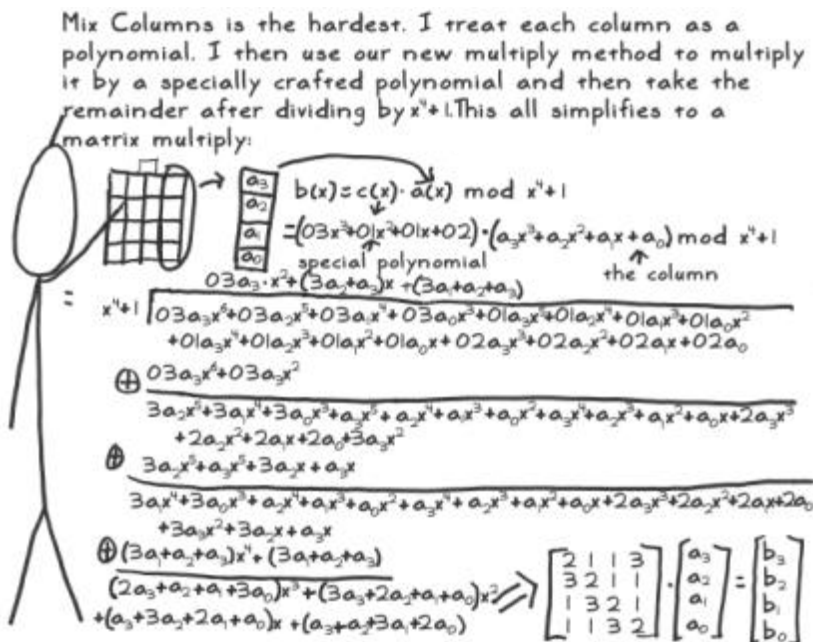 Mix Columns is the hardest. I treat each column as a
polynomial. I then use our new multiply method to multiply
it by a specially crafted polynomial and then take the
remainder after dividing by x⁴+1. This all simplifies to a
matrix multiply:
a₃
a₂
a₁
a₀
b(x)=c(x)·a(x) mod x⁴+1
=(03x³+01x²+01x+02)·(a₃x³+a₂x²+a₁x+a₀) mod x⁴+1
special polynomial
the column
03a₃·x²+(3a₂+a₃)x+(3a₁+a₂+a₃)
= x⁴+1 03a₃x⁶+03a₂x⁵+03a₁x⁴+03a₀x³+01a₃x⁵+01a₂x⁴+01a₁x³+01a₀x²
+01a₃x⁴+01a₂x³+01a₁x²+01a₀x+02a₃x³+02a₂x²+02a₁x+02a₀
⊕ 03a₃x⁶+03a₃x²
3a₂x⁵+3a₁x⁴+3a₀x³+a₃x⁵+a₂x⁴+a₁x³+a₀x²+a₃x⁴+a₂x³+a₁x²+a₀x+2a₃x³
+2a₂x²+2a₁x+2a₀+3a₃x²
⊕ 3a₂x⁵+a₃x⁵+3a₂x+a₃x
3a₁x⁴+3a₀x³+a₂x⁴+a₁x³+a₀x²+a₃x⁴+a₂x³+a₁x²+a₀x+2a₃x³+2a₂x²+2a₁x+2a₀
+3a₃x²+3a₂x+a₃x
⊕ (3a₁+a₂+a₃)x⁴+(3a₁+a₂+a₃)
(2a₃+a₂+a₁+3a₀)x³+(3a₃+2a₂+a₁+a₀)x²
+(a₃+3a₂+2a₁+a₀)x+(a₃+a₂+3a₁+2a₀)
[2 1 1 3] · [a₃] = [b₃]
[3 2 1 1] [a₂] [b₂]
[1 3 2 1] [a₁] [b₁]
[1 1 3 2] [a₀] [b₀]